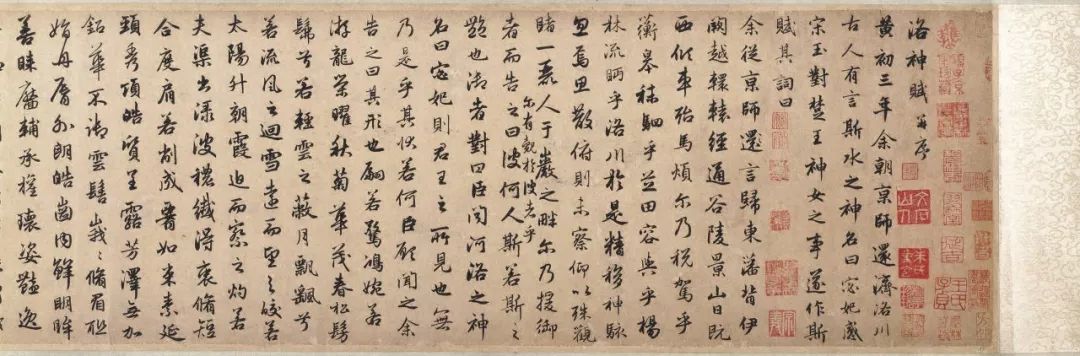 洛神賦 并序
黄初三年余朝京師還濟洛川
古人有言斯水之神名曰宓妃感
宋玉對楚王神女之事遂作斯
賦其詞曰
余從京師還言歸東藩背伊
闕越轘轅經通谷陵景山日既
西傾車殆馬煩尔乃税駕乎
蘅皋秣駟乎芝田容與乎楊
林流眄乎洛川於是精移神駭
忽焉思散俯則未察仰以殊觀
睹一麗人于巖之畔尔乃援御
者而告之曰尔有覿於彼者乎彼何人斯若斯之
豔也御者對曰臣聞河洛之神
名曰宓妃則君王之所見也無
乃是乎其狀若何臣願聞之余
告之曰其形也翩若驚鴻婉若
游龍榮曜秋菊華茂春松髣
髴兮若輕雲之蔽月飄飄兮
若流風之迴雪遠而望之皎若
太陽升朝霞迫而察之灼若
夫渠出渌波穠纖得衷脩短
合度肩若削成腰如束素延
頸秀項皓質呈露芳澤無加
鉛華不御雲髻峩〻脩眉聯
娟丹脣外朗皓齒内鮮明眸
善睞靨輔承權瓌姿豔逸